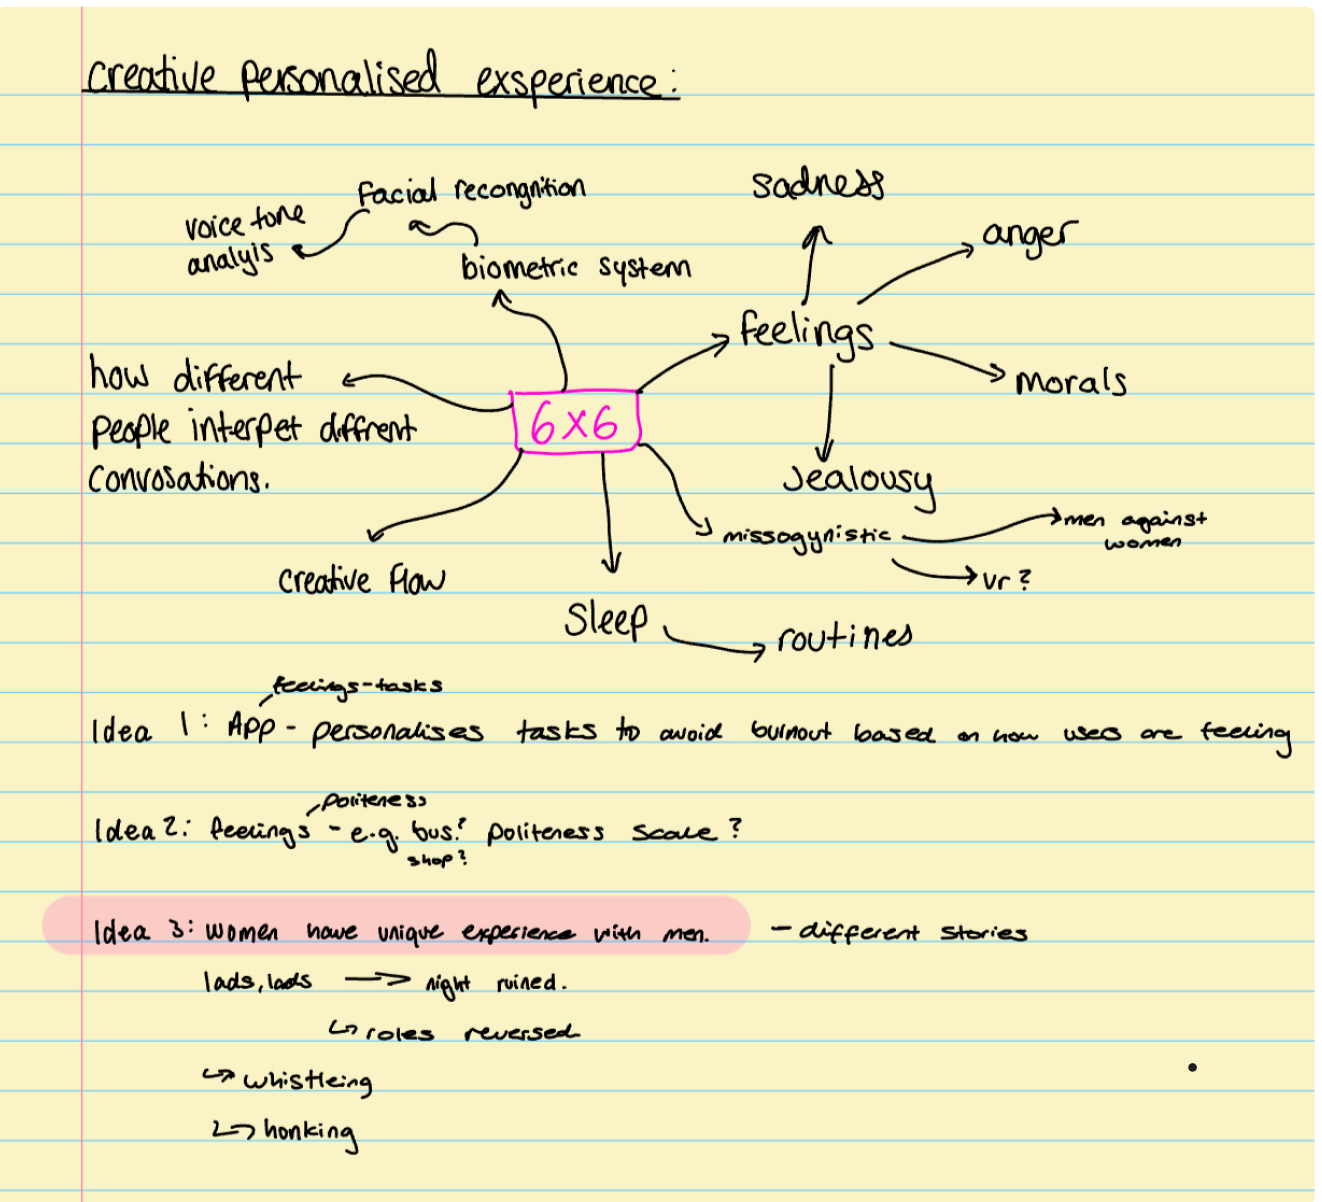 creative personalised exsperience:
sadness
facial recongnition
voice tone
analyis
anger
biometric system
feelings
how different
people interpet diffrent
convosations.
morals
6x6
Jealousy
missogynistic
men against
women
vr?
creative flow
Sleep
routines
feelings-tasks
Idea 1: App - personalises tasks to avoid burnout based on how users are feeling
politeness
Idea 2: feelings - e.g. bus? politeness scale?
shop?
Idea 3: women have unique experience with men. - different stories
lads, lads → night ruined.
↳ roles reversed
↳ whistleing
↳ honking